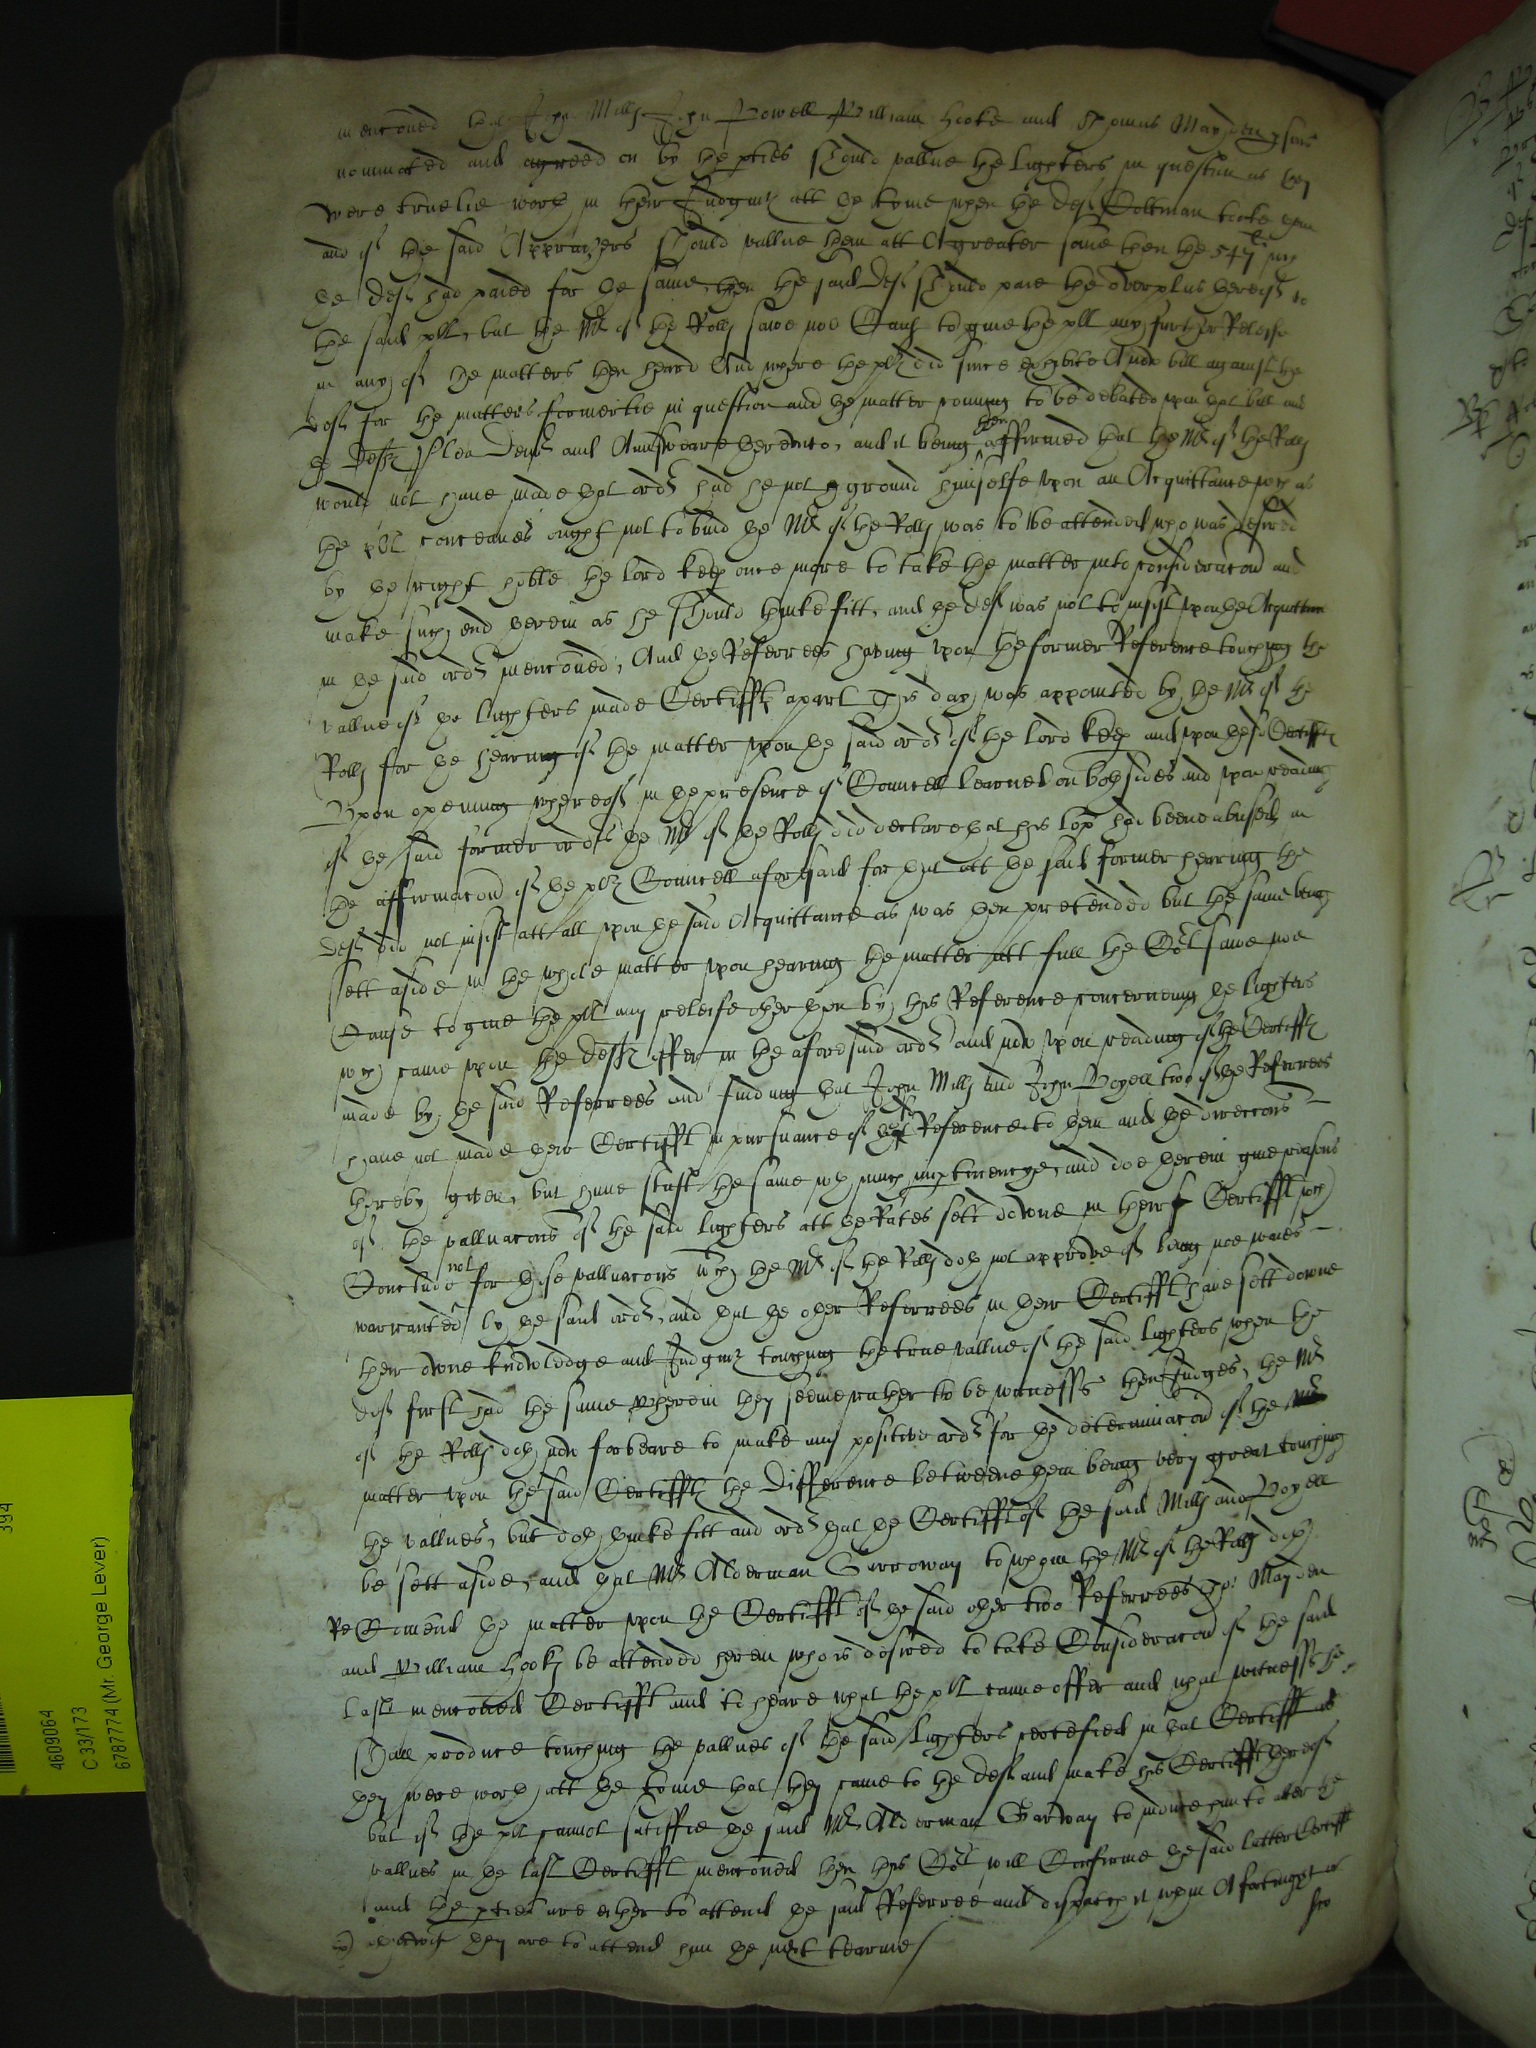 menconed that John Mills John Powell William Hooke and Thomas Mayden psons
nominated and agreed on by the pties should vallue the lighters in question as they
were truelie worth in their Judgmt att the tyme when the deft Coltman tooke them
and if the said Appraizers should vallue them att A greater some then the 547li wch
the deft had paied for the same, then the said deft should paie the overplus thereof to
the said pll, but the Mr of the Rolls sawe noe Cause to give the pll any further Releife
in any of the matters then heard And where the plt did since exhibite A new bill against the
deft for the matters formerlie in question and the matter coming to be debated upon that bill and
the defts Plea Demr and Aunsweare thereunto, and it being then affirmed that the Mr of the Rolls
would not have made that ordr had he not ground himselfe upon an Acquittance wch as
the pll conceaves ought not to bind the Mr of the Rolls was to be attended who was desired
by the right hoble the lord keep once more to take the matter into consideracon and
make such end therein as he should thinke fitt, and the deft was not to insist upon the Acquittance
in the said ordr menconed, And the Referrees having upon the former Reference touching the
vallue of the lighters made Certifftts apart This day was appointed by the Mr of the
Rolls for the hearing of the matter upon the said ordr of the lord keep and upon the sd Certiffts
Upon opening whereof in the presence of Councell learned on both sides and upon reading
of the said former ordrs the Mr of the Rolls did declare that his lopp had beene abused in
the affirmacon of the plts Councell aforesaid for that att the said former hearing the
deft did not insist att all upon the said Acquittance as was then pretended but the same being
sett aside in the whole matter upon hearing the matter att full the Cort sawe noe
Cause to give the pll any releife other then by this Reference concerneing the lighters
wch came upon the defts offer in the aforesaid ordr and now upon reading of the Certiffts
made by the said Referrees and finding that John Mills and John Powell two of the Referrees
have not made their Certifft in pursuance of the Reference to them and the direccons
thereby given, but have stuft the same wth much imptinencye, and doe therein give reasons
of the valluacons of the said lighters att the Rates sett downe in their Certifft wch
Conclude not for those valluacons wch the Mr of the Rolls doth not approve of being noe waies
warranted by the said ordr, and that the other Referrees in their Certifft have sett downe
their owne knowledge and Judgmt touching the true vallue of the said lighters when the
deft first had the same wherein they seeme rather to be witnesses then Judges, the Mr
of the Rolls doth now forbeare to make any positive ordr for the determinacon of the
matter upon the said Certiffts the difference betweene them being very great touching
the vallues, but doth thinke fitt and ordr that the Certifft of the said Mills and Powell
be sett aside, and that Mr Alderman Garroway to whom the Mr of the Rolls doth
ReComend the matter upon the Certifft of the said other two Referrees Tho: Mayden
and William Hooke be attended herein who is desired to take Consideracon of the said
last menconed Certifft and to heare what the pll canne offer and what witnesses he
shall produce touching the vallues of the said lighters certefied in that Certifft as
they were worth att the tyme that they came to the deft and make his Certifft thereof
but if the pll cannot satisfie the said Mr Alderman Garway to move him to alter the
vallues in the last Certifft menconed then this Cort will Confirme the said latter Certifft
and the pties are either to attend the said Referree and dispatch it wthin A fortnight or
els
otherwise they are to attend him the next tearme/
394
4609064
C 33/173
6787774 (Mr. George Lever)